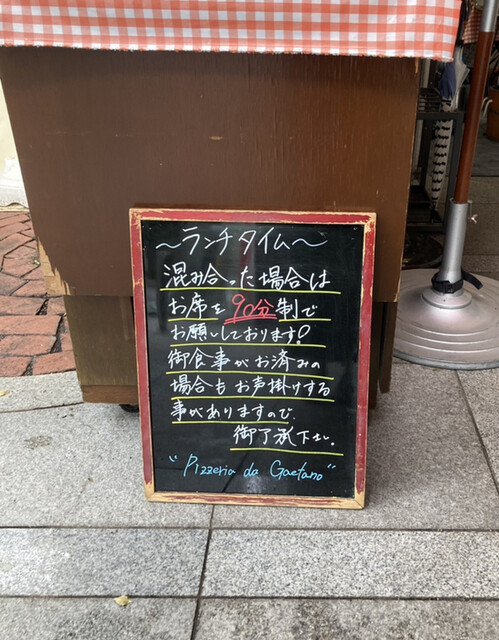 ～ランチタイム～
混み合った場合は
お席を90分制で
お願いしております!
御食事がお済みの
場合もお声掛けする
事がありますので、
御了承下さい。
"Pizzeria da Gaetano"